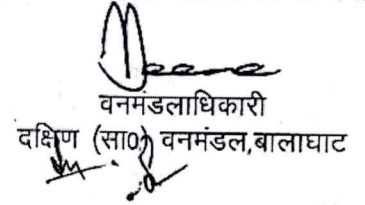 वनमंडलाधिकारी
दक्षिण (सा0) वनमंडल,बालाघाट